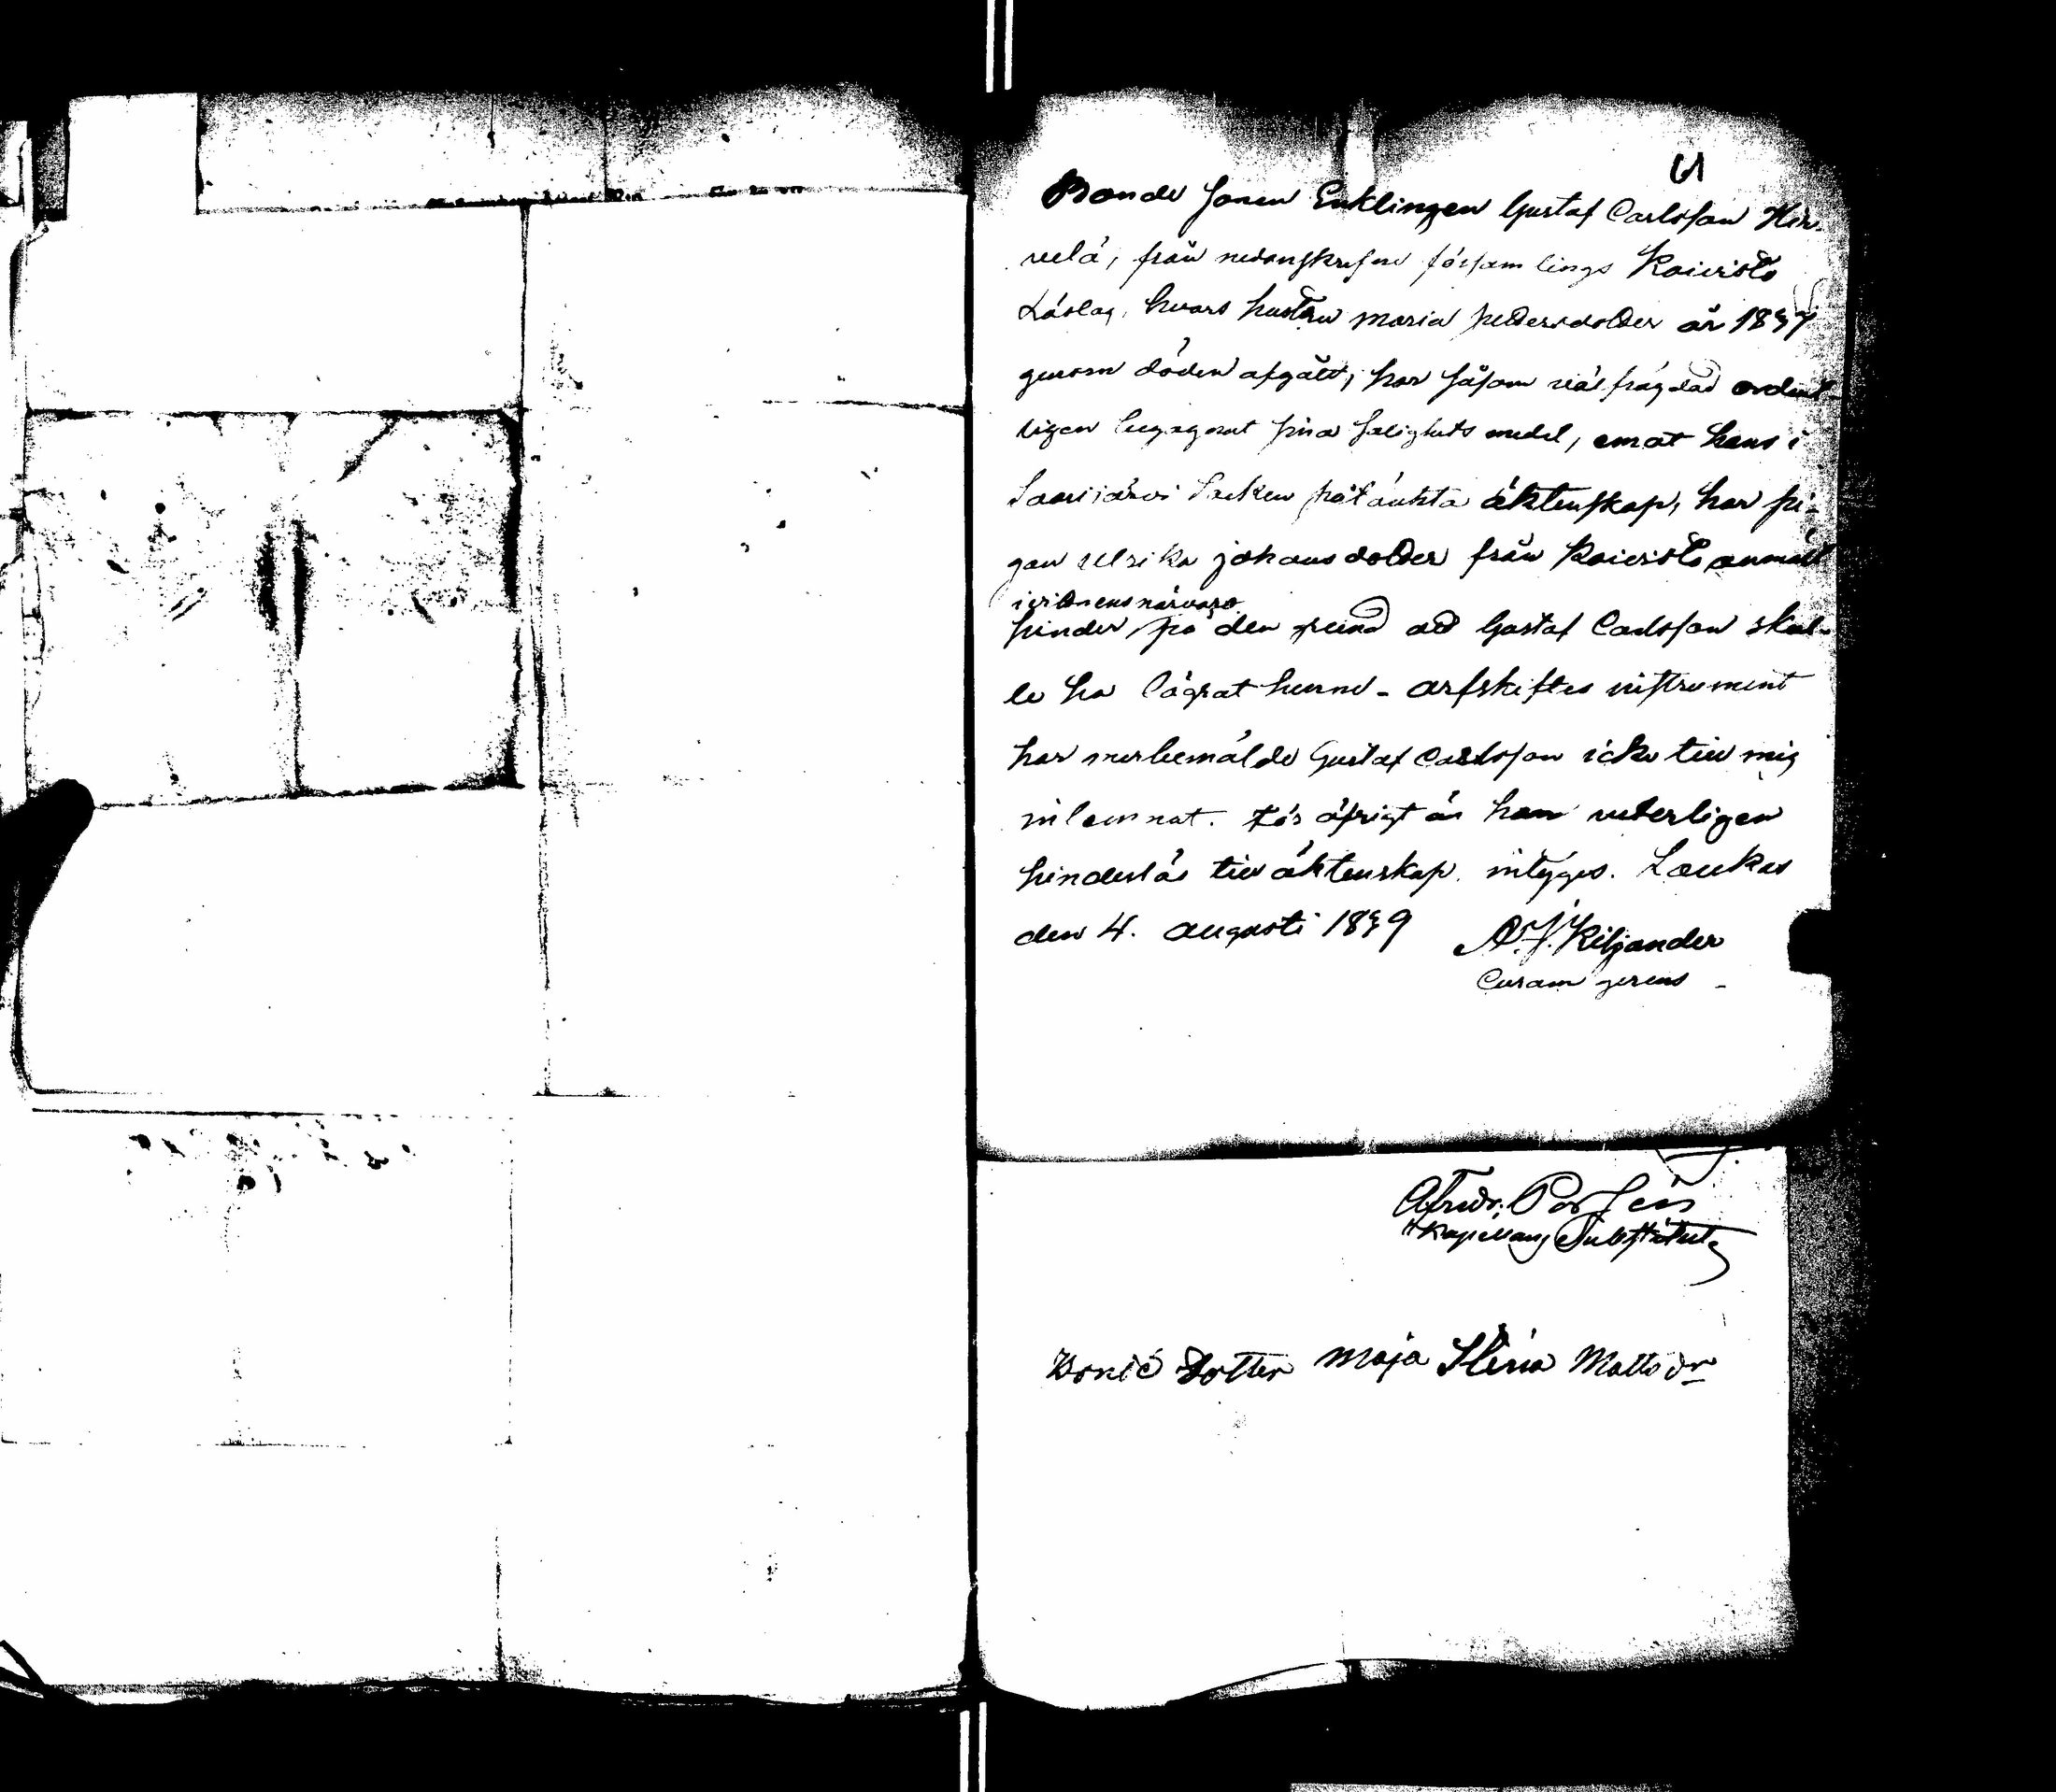 61
Bonde Sonen Enklingen Gustaf Carlsson Hir-
velä, från nedanskrefne församlings Koivisto
Låslag, hvars hustru Maria Pettersdotter år 1837
genom döden afgått, har såsom välfrägdad ordent-
ligen begagnat sina salighets medel, emot hans i
Saarijärvi Socken påtänkta äktenskap, har pi-
gan Ulrika Johansdotter från Koivisto anmält
i vittnens närvaro
hinder, på den grund att Gustaf Carlsson skul-
le ha lägrat henne - arfskiftes instrument
har merbemälde Gustaf Carlsson icke till mig
inlemnat. För öfrigt är han veterligen
hinderlös till äktenskap, intygas. Laukas
den 4. augusti 1839 A. J. Kiljander
Curam gerens
Kapellans Substitut
Dotter Maja Stina Mattsdr